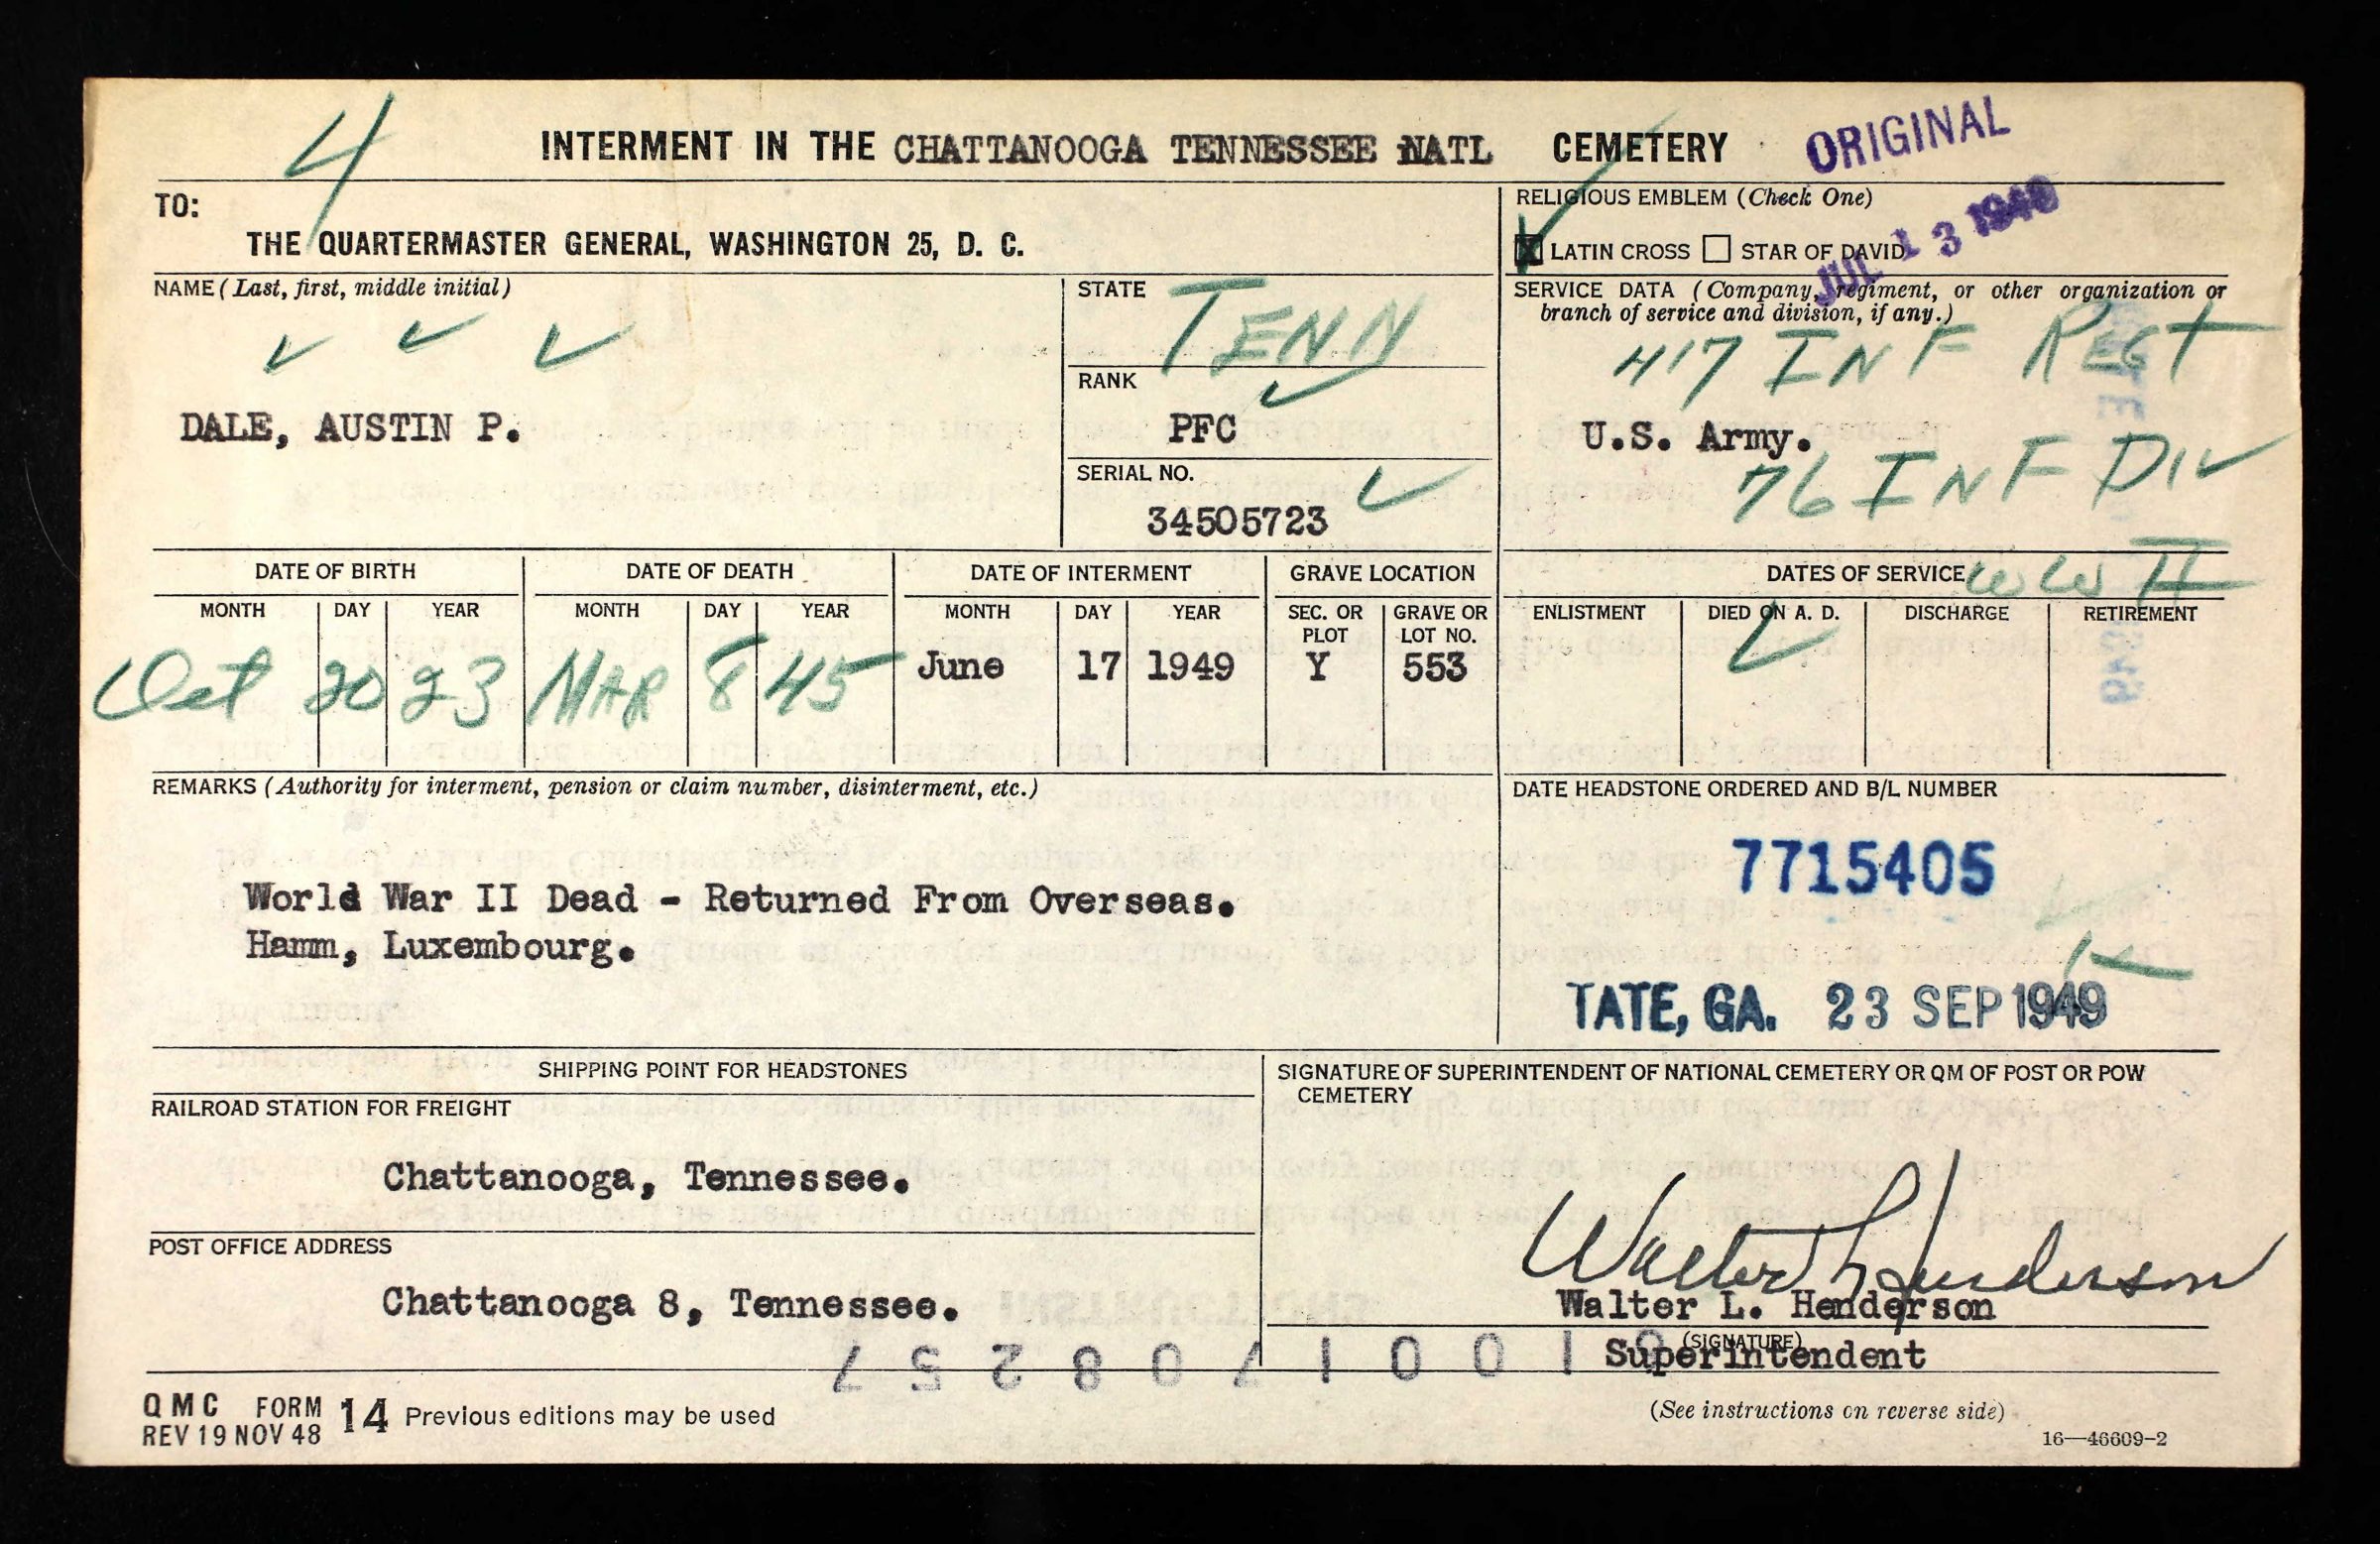 4
INTERMENT IN THE CHATTANOOGA TENNESSEE NATL CEMETERY
ORIGINAL
JUL 13 1949
TO:
THE QUARTERMASTER GENERAL, WASHINGTON 25, D. C.
RELIGIOUS EMBLEM (Check One)
X LATIN CROSS STAR OF DAVID
NAME (Last, first, middle initial)
DALE, AUSTIN P.
STATE
TENN
RANK
PFC
SERIAL NO.
34505723
SERVICE DATA (Company, regiment, or other organization or
branch of service and division, if any.)
417 INF REGT
U.S. Army.
76 INF DIV
DATE OF BIRTH DATE OF DEATH DATE OF INTERMENT GRAVE LOCATION
MONTH DAY YEAR MONTH DAY YEAR MONTH DAY YEAR SEC. OR PLOT GRAVE OR LOT NO.
Oct 20 23 MAR 8 45 June 17 1949 Y 553
DATES OF SERVICE WW II
ENLISTMENT DIED ON A. D. DISCHARGE RETIREMENT
REMARKS (Authority for interment, pension or claim number, disinterment, etc.)
World War II Dead - Returned From Overseas.
Hamm, Luxembourg.
DATE HEADSTONE ORDERED AND B/L NUMBER
7715405
TATE, GA. 23 SEP 1949
SHIPPING POINT FOR HEADSTONES
RAILROAD STATION FOR FREIGHT
Chattanooga, Tennessee.
POST OFFICE ADDRESS
Chattanooga 8, Tennessee.
SIGNATURE OF SUPERINTENDENT OF NATIONAL CEMETERY OR QM OF POST OR POW
CEMETERY
Walter L. Henderson
Walter L. Henderson
(SIGNATURE)
Superintendent
QMC FORM 14 Previous editions may be used
REV 19 NOV 48
(See instructions on reverse side)
16—46609-2